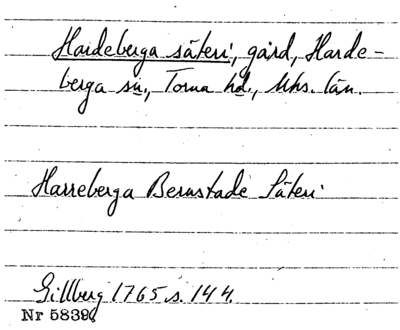 Hardeberga säteri, gård, Harde-
berga sn., Torna hd., Mhs. län.
Harreberga Bernstade Säteri
Gillberg 1765 s. 144.
Nr 5839